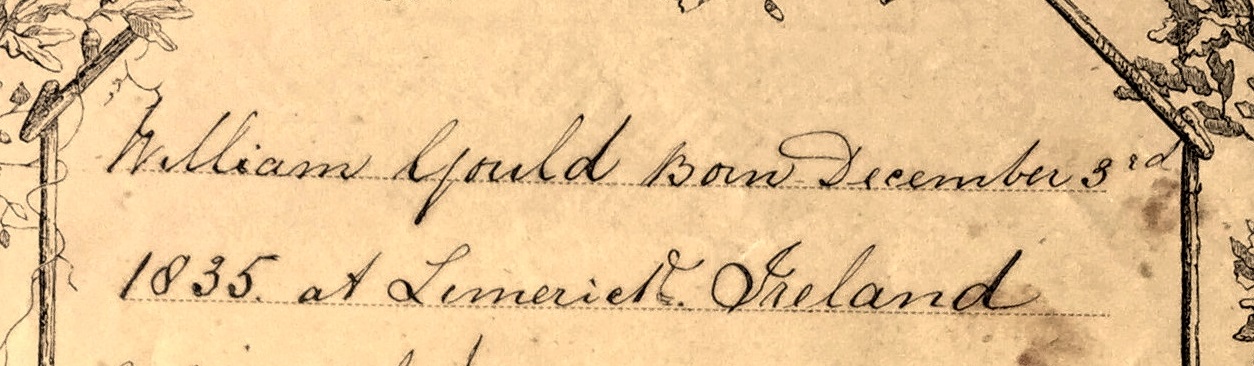 William Gould Born December 3rd
1835. at Limerick. Ireland